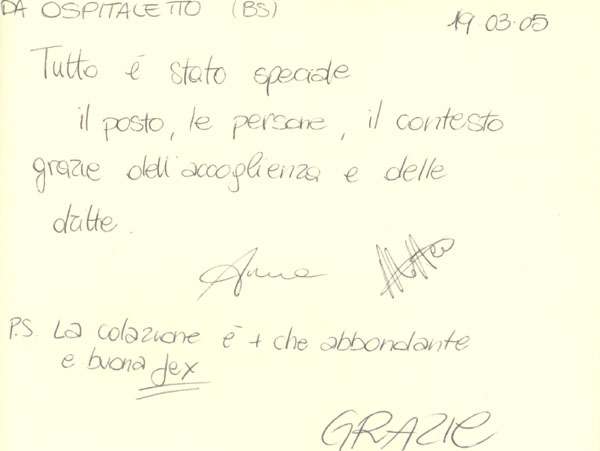 DA OSPITALETTO (BS) 19 03.05
Tutto è stato speciale
il posto, le persone, il contesto
grazie dell'accoglienza e delle
datte.
Anna Matteo
P.S. La colazione è + che abbondante
e buona
GRAZIE